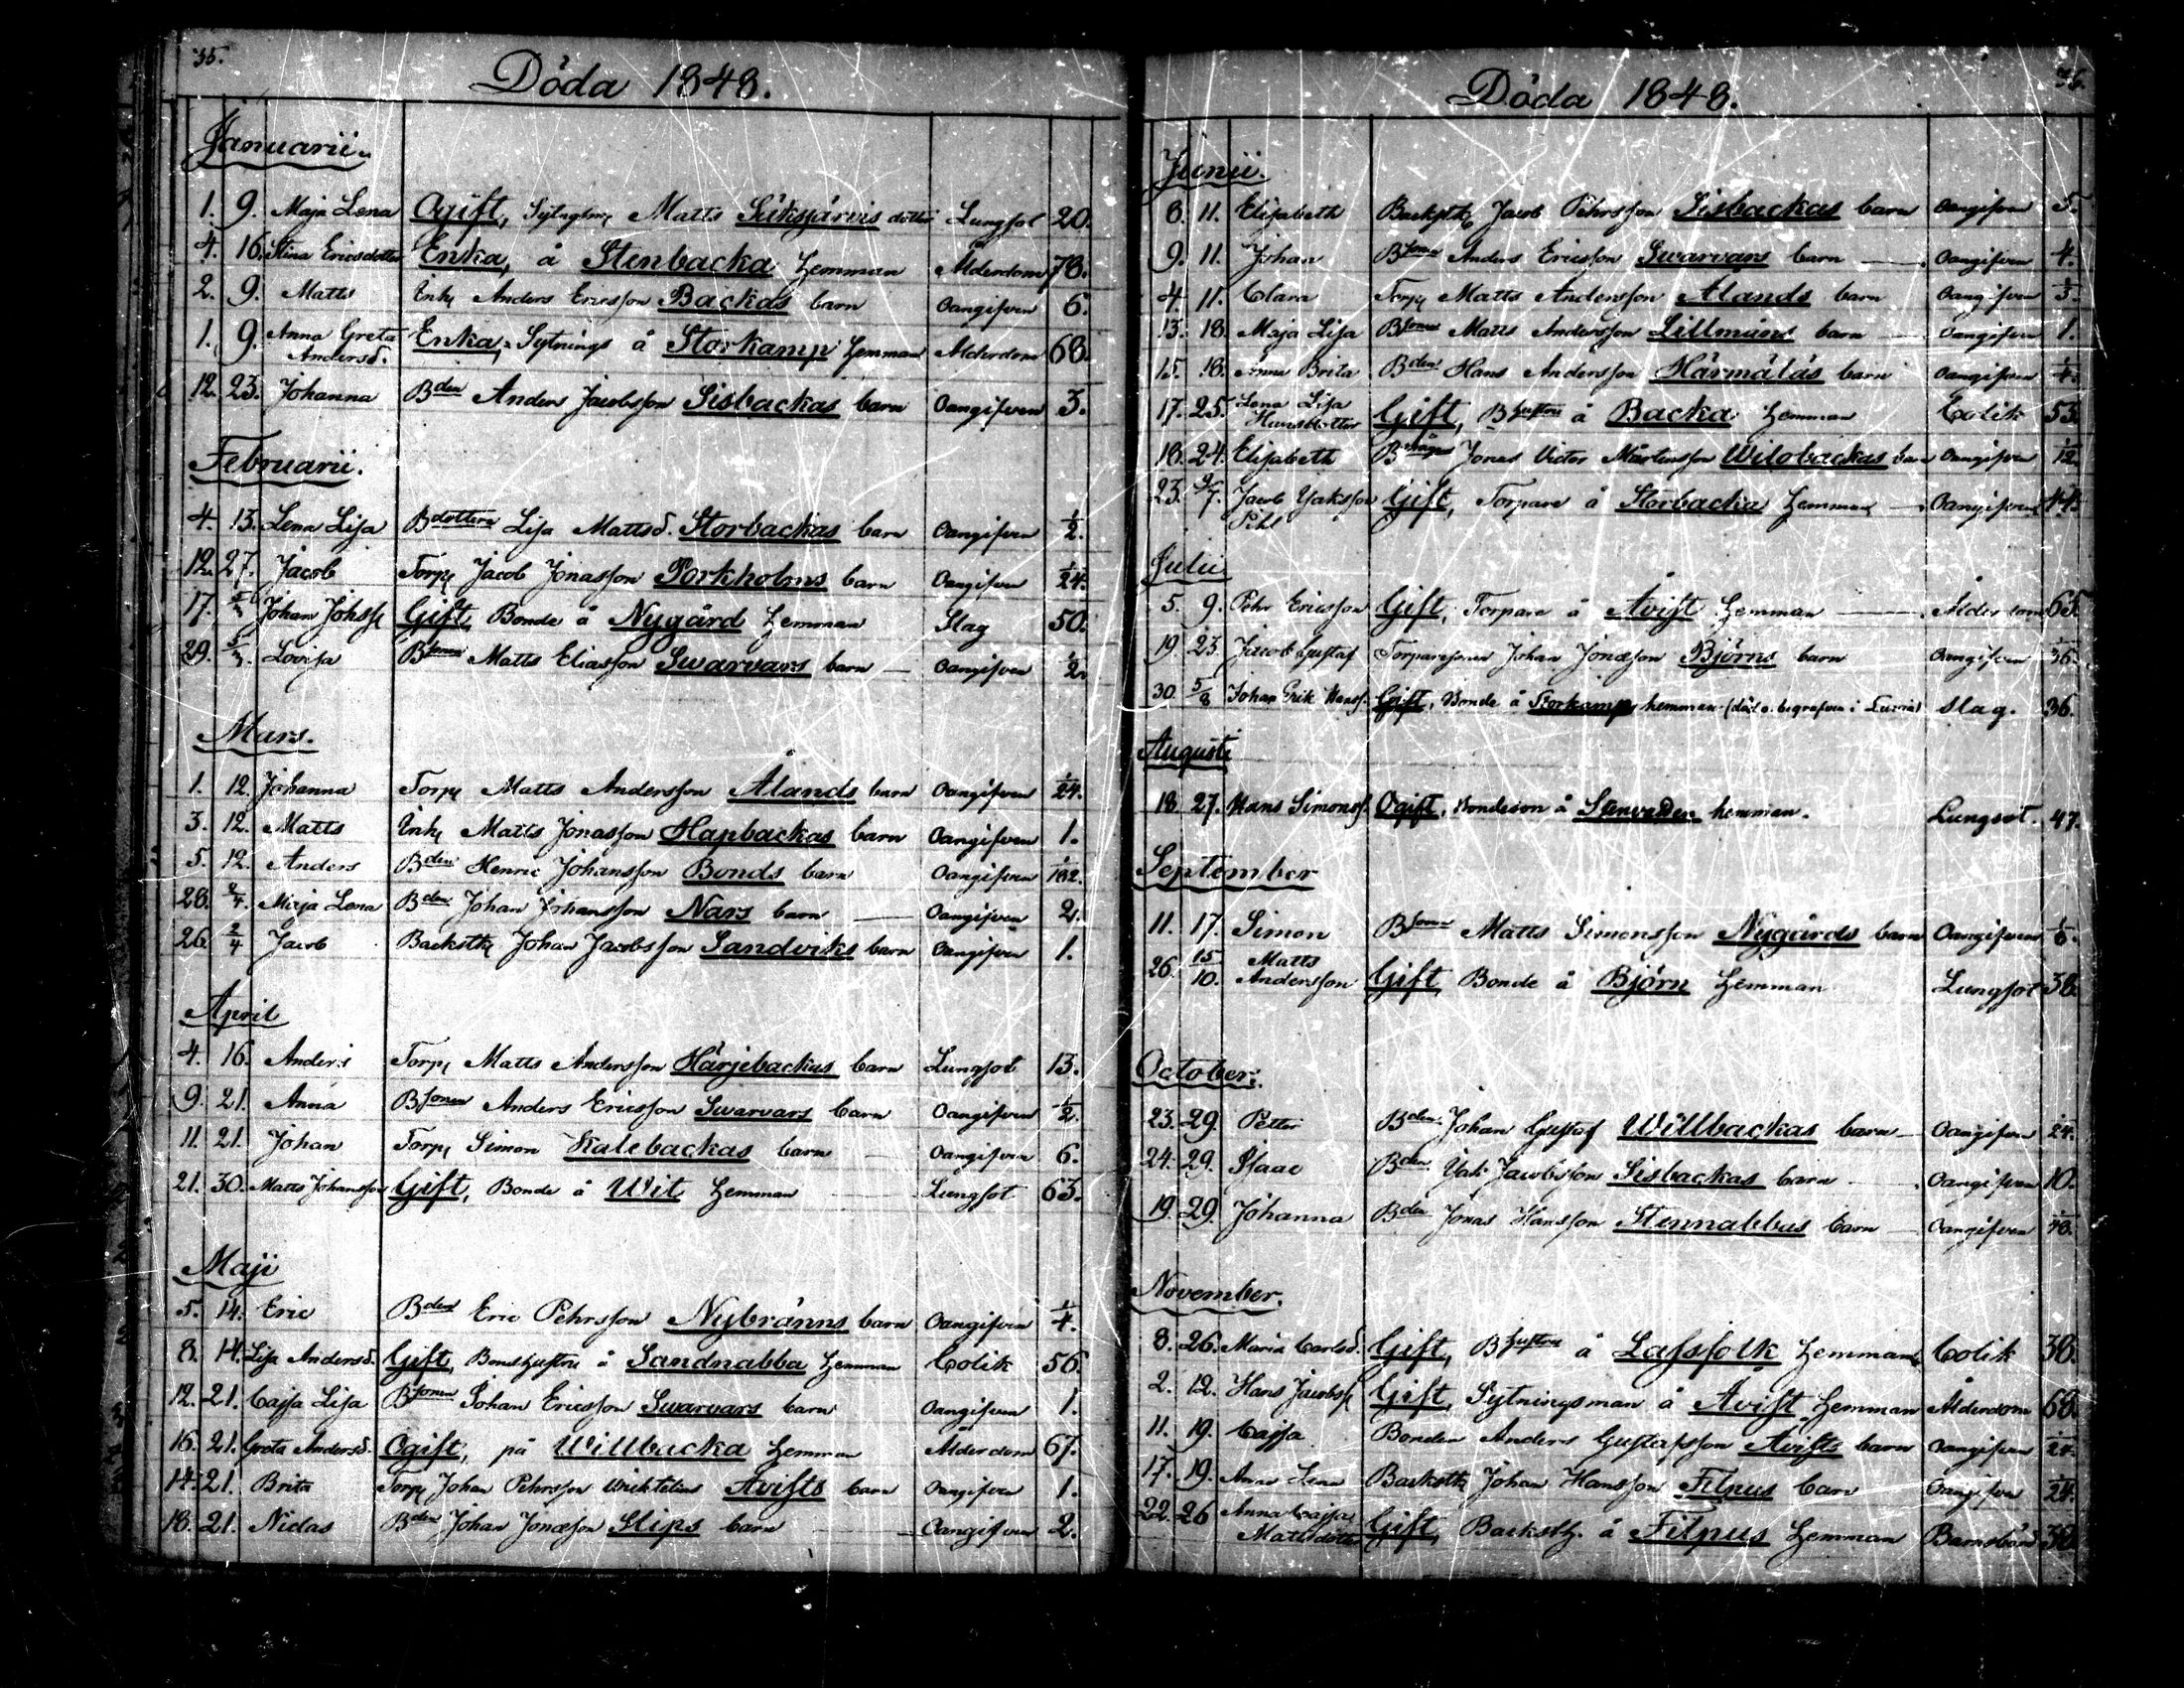 35.
Döda 1848.
Januarii.
1. 9. Maja Lena Ogift, Sytngsm Matts Süksjärvis dotter Lungsot 20.
4. 16. Stina Ericsdotter Enka, å Stenbacka Hemman Ålderdom 78.
2. 9. Matts Inh Anders Ericsson Backas barn Oangifven 6.
1. 9. Anna Greta Andersd. Enka, Sytnings å Storkamp Hemman Ålderdom 68.
12. 23. Johanna Bden Anders Jacobsson Sisbackas barn Oangifven 3.
Februarii.
4. 13. Lena Lisa Bdotters Lisa Mattsd. Storbackas barn Oangifven 1/2.
12. 27. Jacob Torp Jacob Jonasson Porkholms barn Oangifven 1/24.
17. Johan Johss Gift, Bonde å Nygård Hemman Slag 50.
29. 5/3. Lovisa Bsonen Matts Eliasson Swarvars barn — Oangifven 1/2.
Mars.
1. 12. Johanna Torp Matts Andersson Ålands barn Oangifven 1/24.
3. 12. Matts Inh Matts Jonasson Hapbackas barn Oangifven 1.
5. 12. Anders Bden Henric Johansson Bonds barn Oangifven
28. 2/4. Maja Lena Bden Johan Johansson Nars barn — Oangifven 2.
26. 2/4 Jacob Backsth Johan Jacobsson Sandviks barn Oangifven 1.
April
4. 16. Anders Torp Matts Andersson Härjebackas barn Lungsot 13.
9. 21. Anna Bsonen Anders Ericsson Swarvars barn Oangifven 1/2.
11. 21. Johan Torp Simon Kalebackas barn — Oangifven 6.
21. 30. Matts Johansson Gift, Bonde å Wit Hemman — Lungsot 63.
Maji
5. 14. Eric Bden Eric Pehrsson Nybränns barn Oangifven 1/4.
8. 14. Lisa Andersd. Gift, Bondhustru å Sandnabba Hemman Colik 56.
12. 21. Cajsa Lisa Bsonen Johan Ericsson Swarvars barn Oangifven 1.
16. 21. Greta Andersd. Ogift, på Willbacka Hemman Ålderdom 67.
14. 21. Brita Torp Johan Pehrsson Avists barn Oangifven 1.
18. 21. Niclas Bden Johan Jonasson Slips barn — Oangifven 2.
36.
Döda 1848.
Junii.
8. 11. Elisabeth Backsth Jacob Pehrsson Sisbackas barn Oangifven 5.
9. 11. Johan Bsonen Anders Ericsson Swarvars barn — Oangifven 1/4.
4 11. Clara Torp Matts Andersson Ålands barn Oangifven 1/3.
13. 18. Maja Lisa Bsonen Matts Andersson Lillmåns barn — Oangifven 1.
15. 18. Anna Brita Bden Hans Andersson Härmäläs barn Oangifven 1/4.
17. 25. Lena Lisa Hansdotter Gift, Bhustru å Backa Hemman Colik 53.
18. 24. Elisabeth Bmågen Jonas Victor Mårtensson Wilobackas barn Oangifven 1/12.
23. 9/7. Jacob Yaksson Pihl Gift, Torpare å Storbacka Hemman — Oangifven 44.
Julii
5. 9. Pehr Ericsson Gift, Torpare å Åvist Hemman — Ålderdom 65.
19. 23. Jacob Gustaf Torparesonen Johan Jonasson Björns barn Oangifven 1/36.
30. 5/8 Johan Erik Hanss. Gift, Bonde å Storkamp hemman (död o. begrafven i Lurva) Slag. 36.
Augusti
18. 27. Hans Simonss. Ogift, Bondeson å hemman. Lungsot. 47.
September
11. 17. Simon Bsonen Matts Simonsson Nygårds barn Oangifven 1/6.
26. 15/10. Matts Andersson Gift, Bonde å Björn Hemman Lungsot 38.
October.
23. 29. Petter Bden Johan Gustaf Willbackas barn — Oangifven 1/24.
24. 29. Isaac Bden Yak Jacobsson Sisbackas barn — Oangifven 10.
19. 29. Johanna Bden Jonas Hansson Stennabbas barn — Oangifven
November.
8. 26. Maria Carlsd. Gift, Bhustru å Lassfolk Hemman Colik 38.
2. 12. Hans Jacobss Gift, Sytningsman å Åvist Hemman Ålderdom 68.
11. 19. Cajsa Bonden Anders Gustafsson Avists barn Oangifven 1/24.
17. 19. Anna Lena Backsth Johan Hansson Filpus barn Oangifven 1/24.
22. 26 Anna Cajsa Mattsdotter Gift, Backsth. å Filpus Hemman Barnsbörd 30